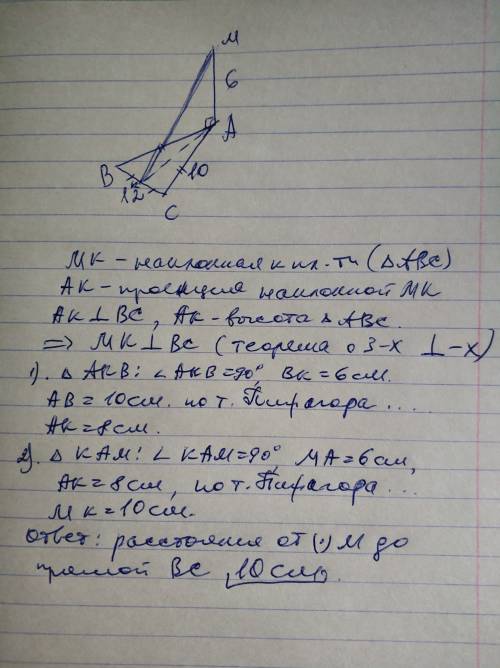 М
6
А
В
10
К
12
С
МК – наклонная к пл-ти (△АВС)
АК – проекция наклонной МК
АК⊥ВС, АК – высота △АВС.
=> МК⊥ВС (теорема о 3-х ⊥-х)
1). △АКВ: ∠АКВ=90°, ВК=6см.
АВ=10см. по т. Пифагора ....
АК=8см.
2). △КАМ: ∠КАМ=90°, МА=6см,
АК=8см, по т. Пифагора ...
МК=10см.
Ответ: расстояния от (·) М до
прямой ВС, 10см.